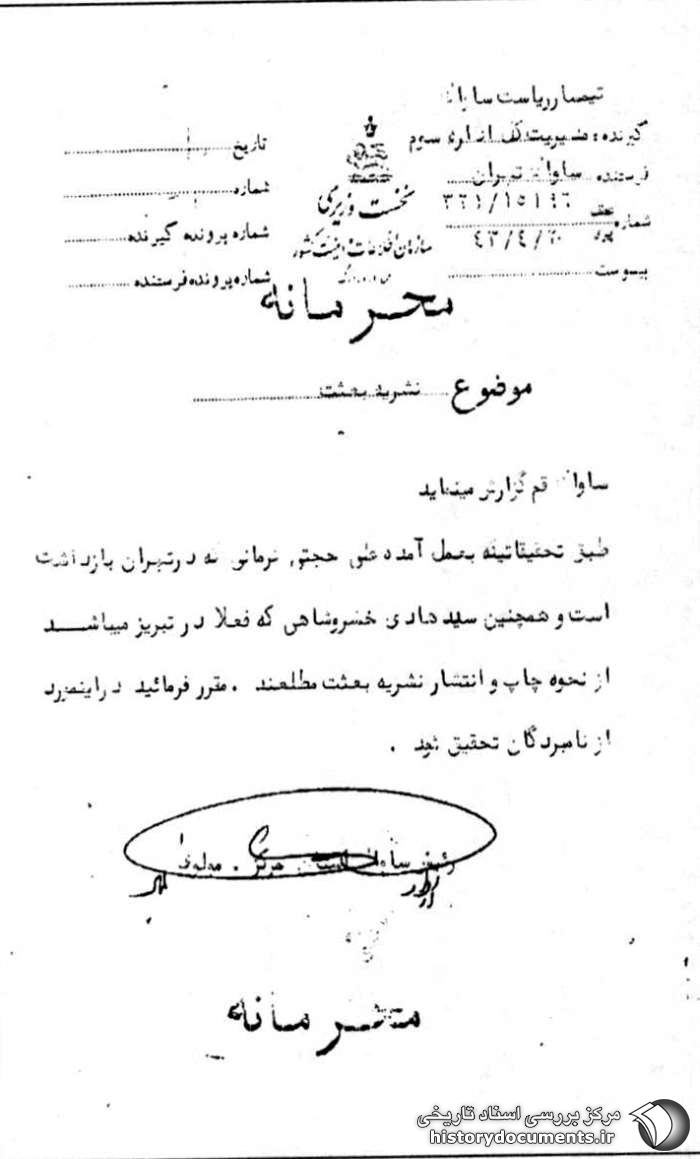 تیمسار ریاست ساواک
گیرنده: مدیریت کل اداره سوم
فرستنده ساواک تهران
شماره ۳۲۱/۱۵۱۹۶
۴۳/۴/۲۰
پیوست
نخست وزیری
سازمان اطلاعات و امنیت کشور
تاریخ
شماره
شماره پرونده گیرنده
شماره پرونده فرستنده
محرمانه
موضوع نشریه بعثت
ساواک قم گزارش مینماید
طبق تحقیقاتیکه بعمل آمده علی حجتی کرمانی که در تهران بازداشت
است و همچنین سید هادی خسروشاهی که فعلا در تبریز میباشد
از نحوه چاپ و انتشار نشریه بعثت مطلعند . مقرر فرمائید در اینمورد
از نامبردگان تحقیق شود .
رئیس ساواک استان مرکز . مولوی
محرمانه
مرکز بررسی اسناد تاریخی
historydocuments.ir